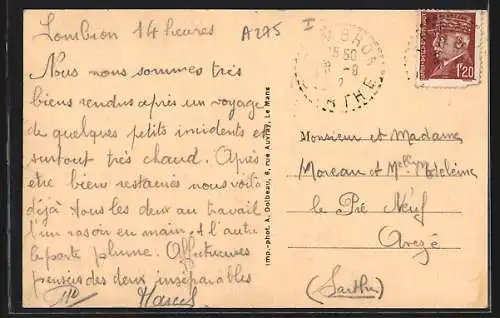 Lombron 14 heures
A275
I
Nous nous sommes très
biens rendus après un voyage
de quelques petits incidents et
surtout très chaud. Après
etre biens restaurés nous voilà
déjà tous les deux au travail
l'un rasoir en main et l'autre
le porte plume. Affectueuses
pensées des deux inséparables
Marcel
Imp.-phot. A. Dolbeau, 6, rue Auvray, Le Mans
1f20
Monsieur et Madame
Moreau et Melle Madeleine
le Pré Neuf
Avezé
(Sarthe)